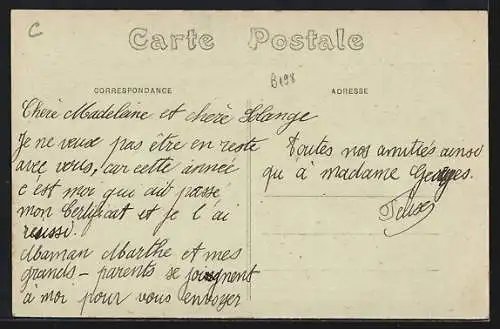 C
Carte Postale
B198
CORRESPONDANCE
ADRESSE
Chère Madelaine et chère Solange
Je ne veux pas être en reste
avec vous, car cette année
c'est moi qui ait passé
mon Certificat et je l'ai
réussi.
Maman Marthe et mes
grands-parents se joingnent
à moi pour vous envoyer
Toutes nos amitiés ainsi
qu'à madame Georges.
Félix